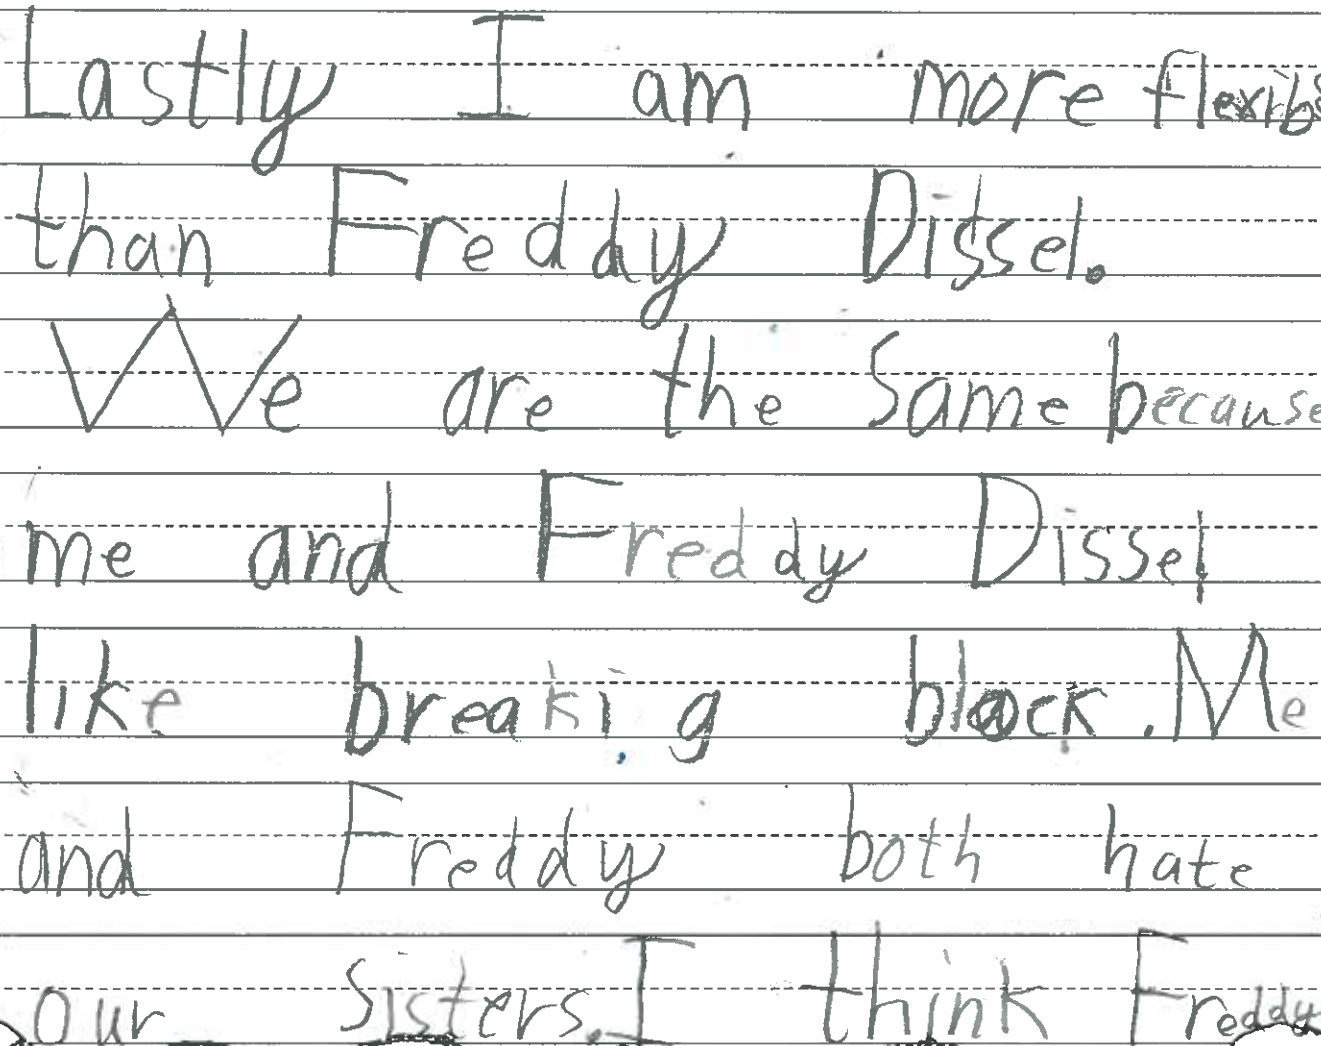 Lastly I am more flexib
than Freddy Dissel.
We are the Same because
me and Freddy Dissel
like breakig block. Me
and Freddy both hate
our Sisters. I think Freddy